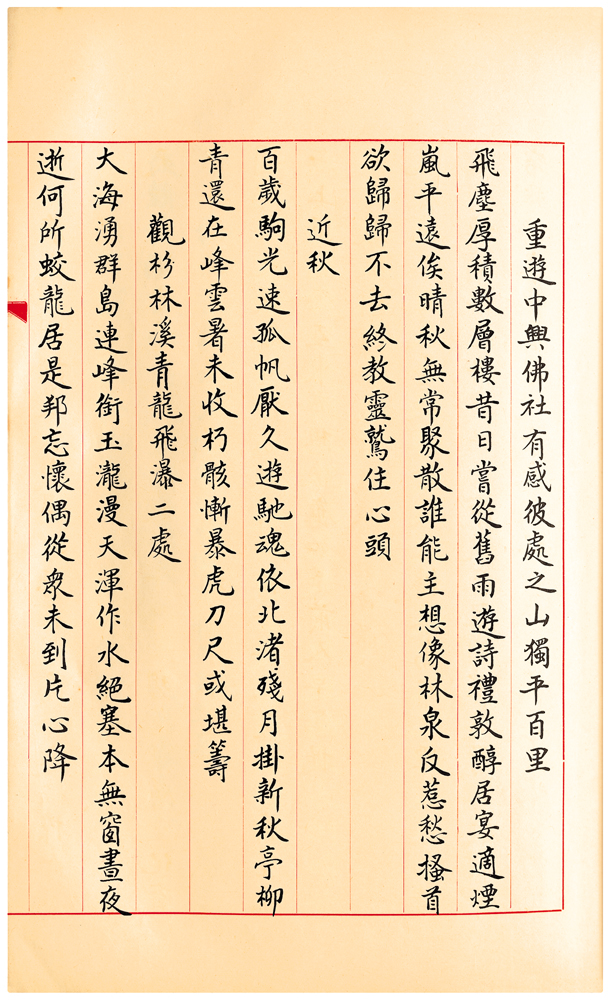 重遊中興佛社有感彼處之山獨平百里
飛塵厚積數層樓昔日嘗從舊雨遊詩禮敦醇居宴適煙
嵐平遠俟晴秋無常聚散誰能主想像林泉反惹愁搔首
欲歸歸不去終教靈鷲住心頭
近秋
百歲駒光速孤帆厭久遊馳魂依北渚殘月掛新秋亭柳
青還在峰雲暑未收朽骸慚暴虎刀尺或堪籌
觀杉林溪青龍飛瀑二處
大海湧群島連峰銜玉瀧漫天渾作水絕塞本無窗晝夜
逝何所蛟龍居是邦忘懷偶從眾未到片心降